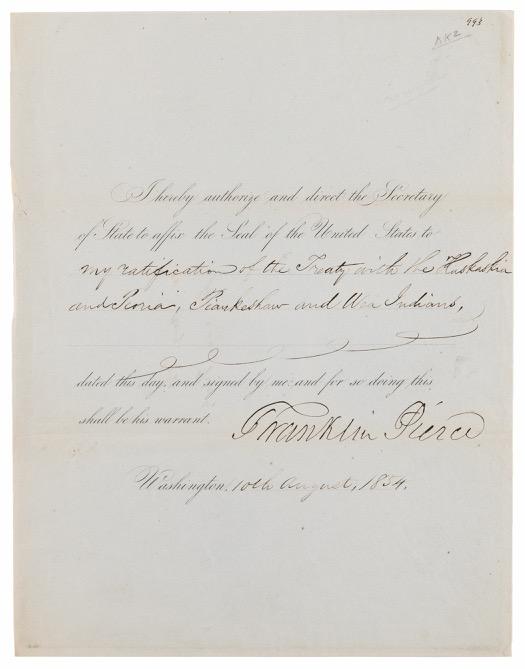 993
AK2
I hereby authorize and direct the Secretary
of State to affix the Seal of the United States to
my ratification of the Treaty with the Kaskaskia
and Peoria, Piankeshaw and Wea Indians,
dated this day, and signed by me: and for so doing this
shall be his warrant.
Franklin Pierce
Washington, 10th August, 1854.